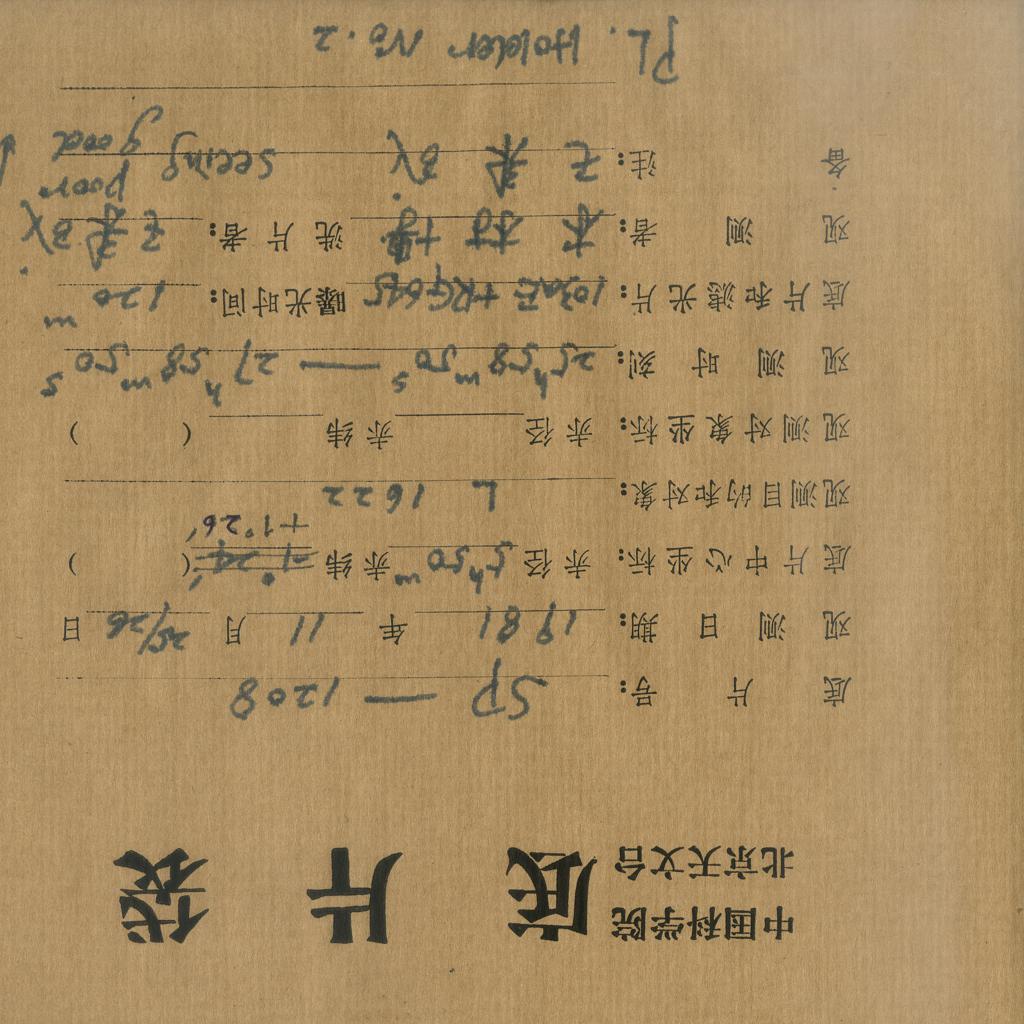 中国科学院
北京天文台
底片袋
底片号: SP — 1208
观测日期: 1981 年 11 月 25/26 日
底片中心坐标: 赤径 5h50m 赤纬 +1°26′ ( )
观测目的和对象: L 1622
观测对象坐标: 赤径 赤纬 ( )
观测时刻: 25h58m50s — 27h58m50s
底片和滤光片: 103aE+RG645 曝光时间: 120m
观测者: 木村博 洗片者:
备注: seeing poor
good
PL. Holder No.2